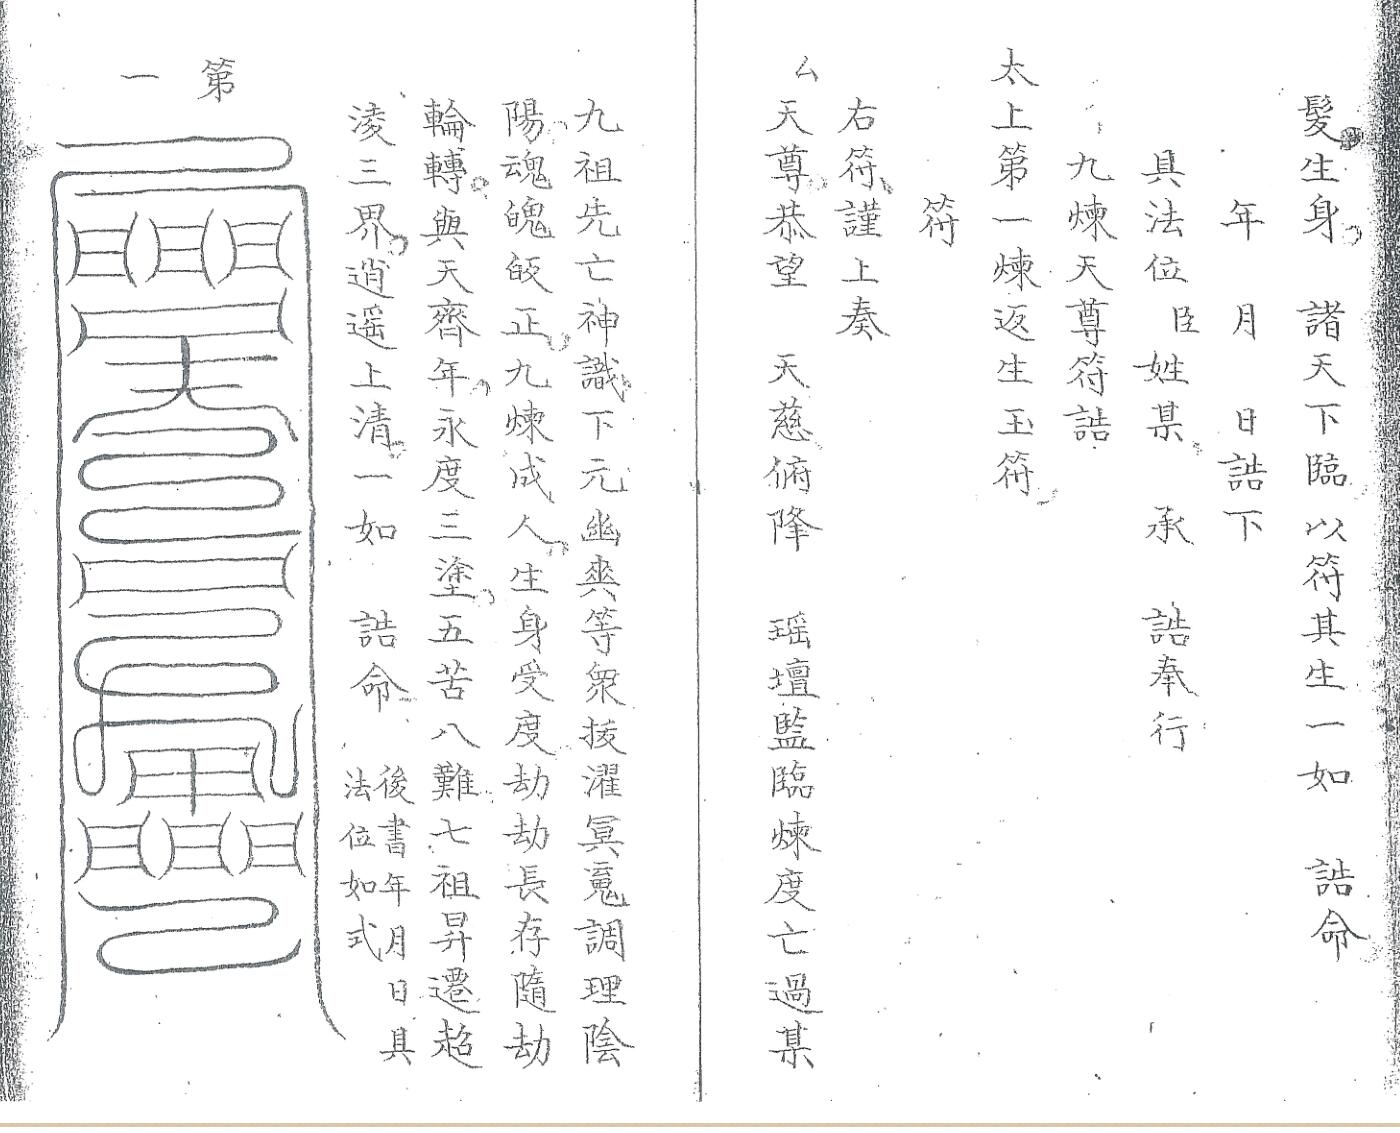 髮生身 諸天下臨以符其生一如 誥命
年 月 日誥下
具法位 臣姓某 承 誥奉行
九煉天尊符誥
太上第一煉返生玉符
符
右符謹上奏
厶天尊恭望 天慈俯降 瑶壇監臨煉度亡過某
九祖先亡神識下元幽爽等衆拔濯冥䰟調理陰
陽魂魄皈正九煉成人生身受度劫劫長存隨劫
輪轉與天齊年永度三塗五苦八難七祖昇遷超
淩三界逍遥上清一如 誥命 後書年月日具
法位如式
第
一